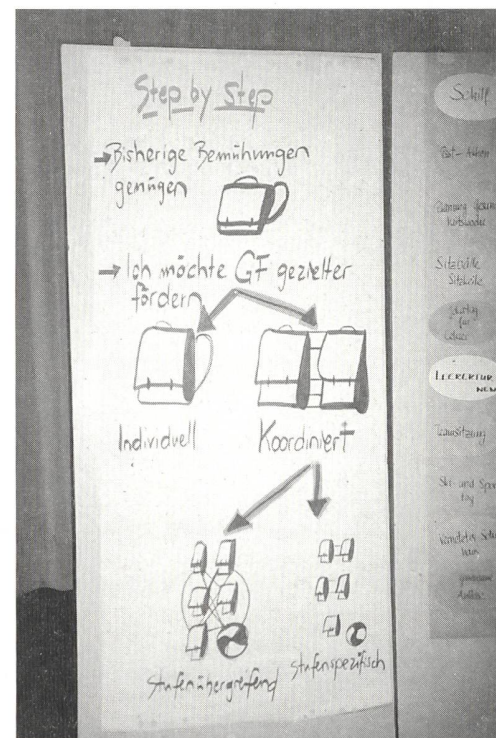 Step by Step
→ Bisherige Bemühungen
genügen
→ Ich möchte GF gezielter
fördern
Individuell
Koordiniert
Stufenübergreifend
Stufenspezifisch
Schilf
Sitzbälle
für
LEHRERTUR
NEN
Teamsitzung
Ski- und Spor
tag